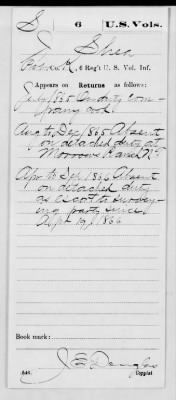 S | 6 | U.S. Vols.
Shea
Co. K, 6 Reg't U. S. Vol. Inf.
Appears on Returns as follows:
July 1865 On duty com-
pany cook.
Aug to Dec, 1865 Absent
on detached duty at
Morrows Ranch N.T.
Apr to Sep 1866 Absent
on detached duty
as escort to survey-
ing party since
Apr 19, 1866
Book mark:
(546) Copyist.